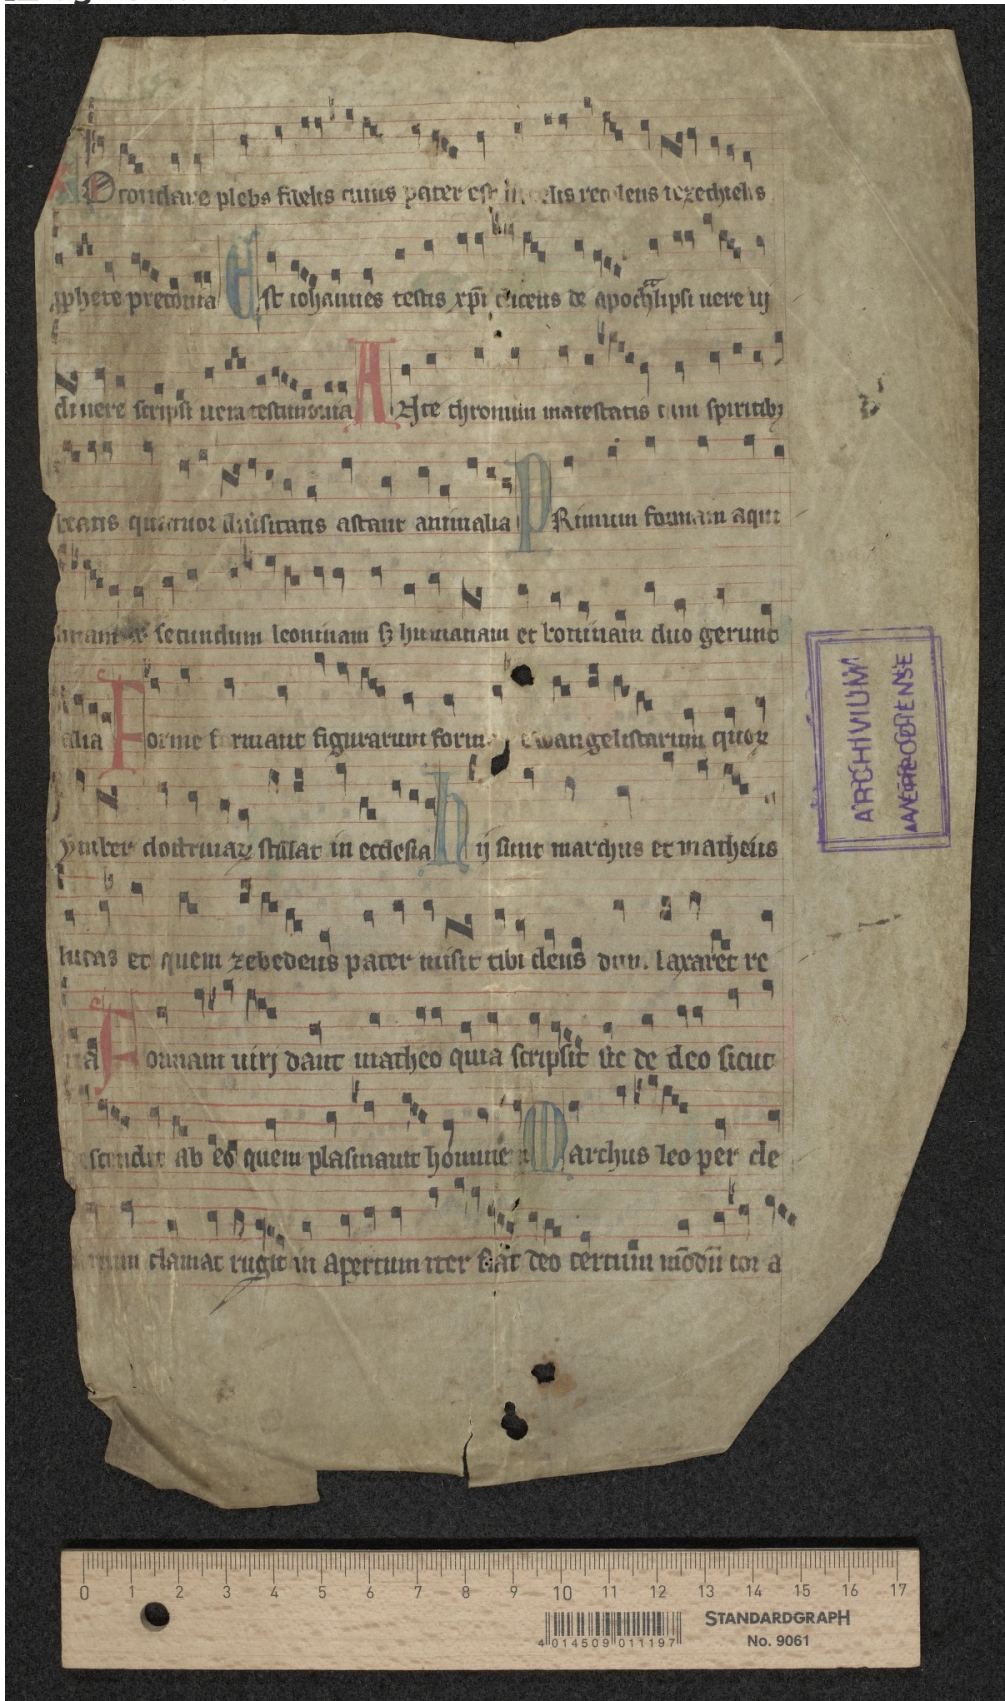 Iocundare plebs fidelis cuius pater est in celis recolens iezechielis
pphete preconia Est iohannes testis xp̄i dicens de apochalipsi uere uị
di uere scripsi uera testimonia Ante thronum maiestatis cum spiritibꝫ
beatis quatuor diuisitatis astant animalia Primum formam aqui
linam et secundum leoninam sꝫ humanam et bouinam duo gerunt
alia Forme formant figurarum formas ewangelistarum quoꝝ
ymber doctrinaꝝ stillat in ecclesia hij sunt marchus et matheus
lucas et quem zebedeus pater misit tibi deus dum laxaret re
tia Formam uirj dant matheo quia scripsit sic de deo sicut
descendit ab eo quem plasmauit homine Marchus leo per de
sertum clamat rugit in apertum iter fiat deo certum mōdū cor a
ARCHIVIUM
0 1 2 3 4 5 6 7 8 9 10 11 12 13 14 15 16 17
STANDARDGRAPH
No. 9061
4 014509 011197